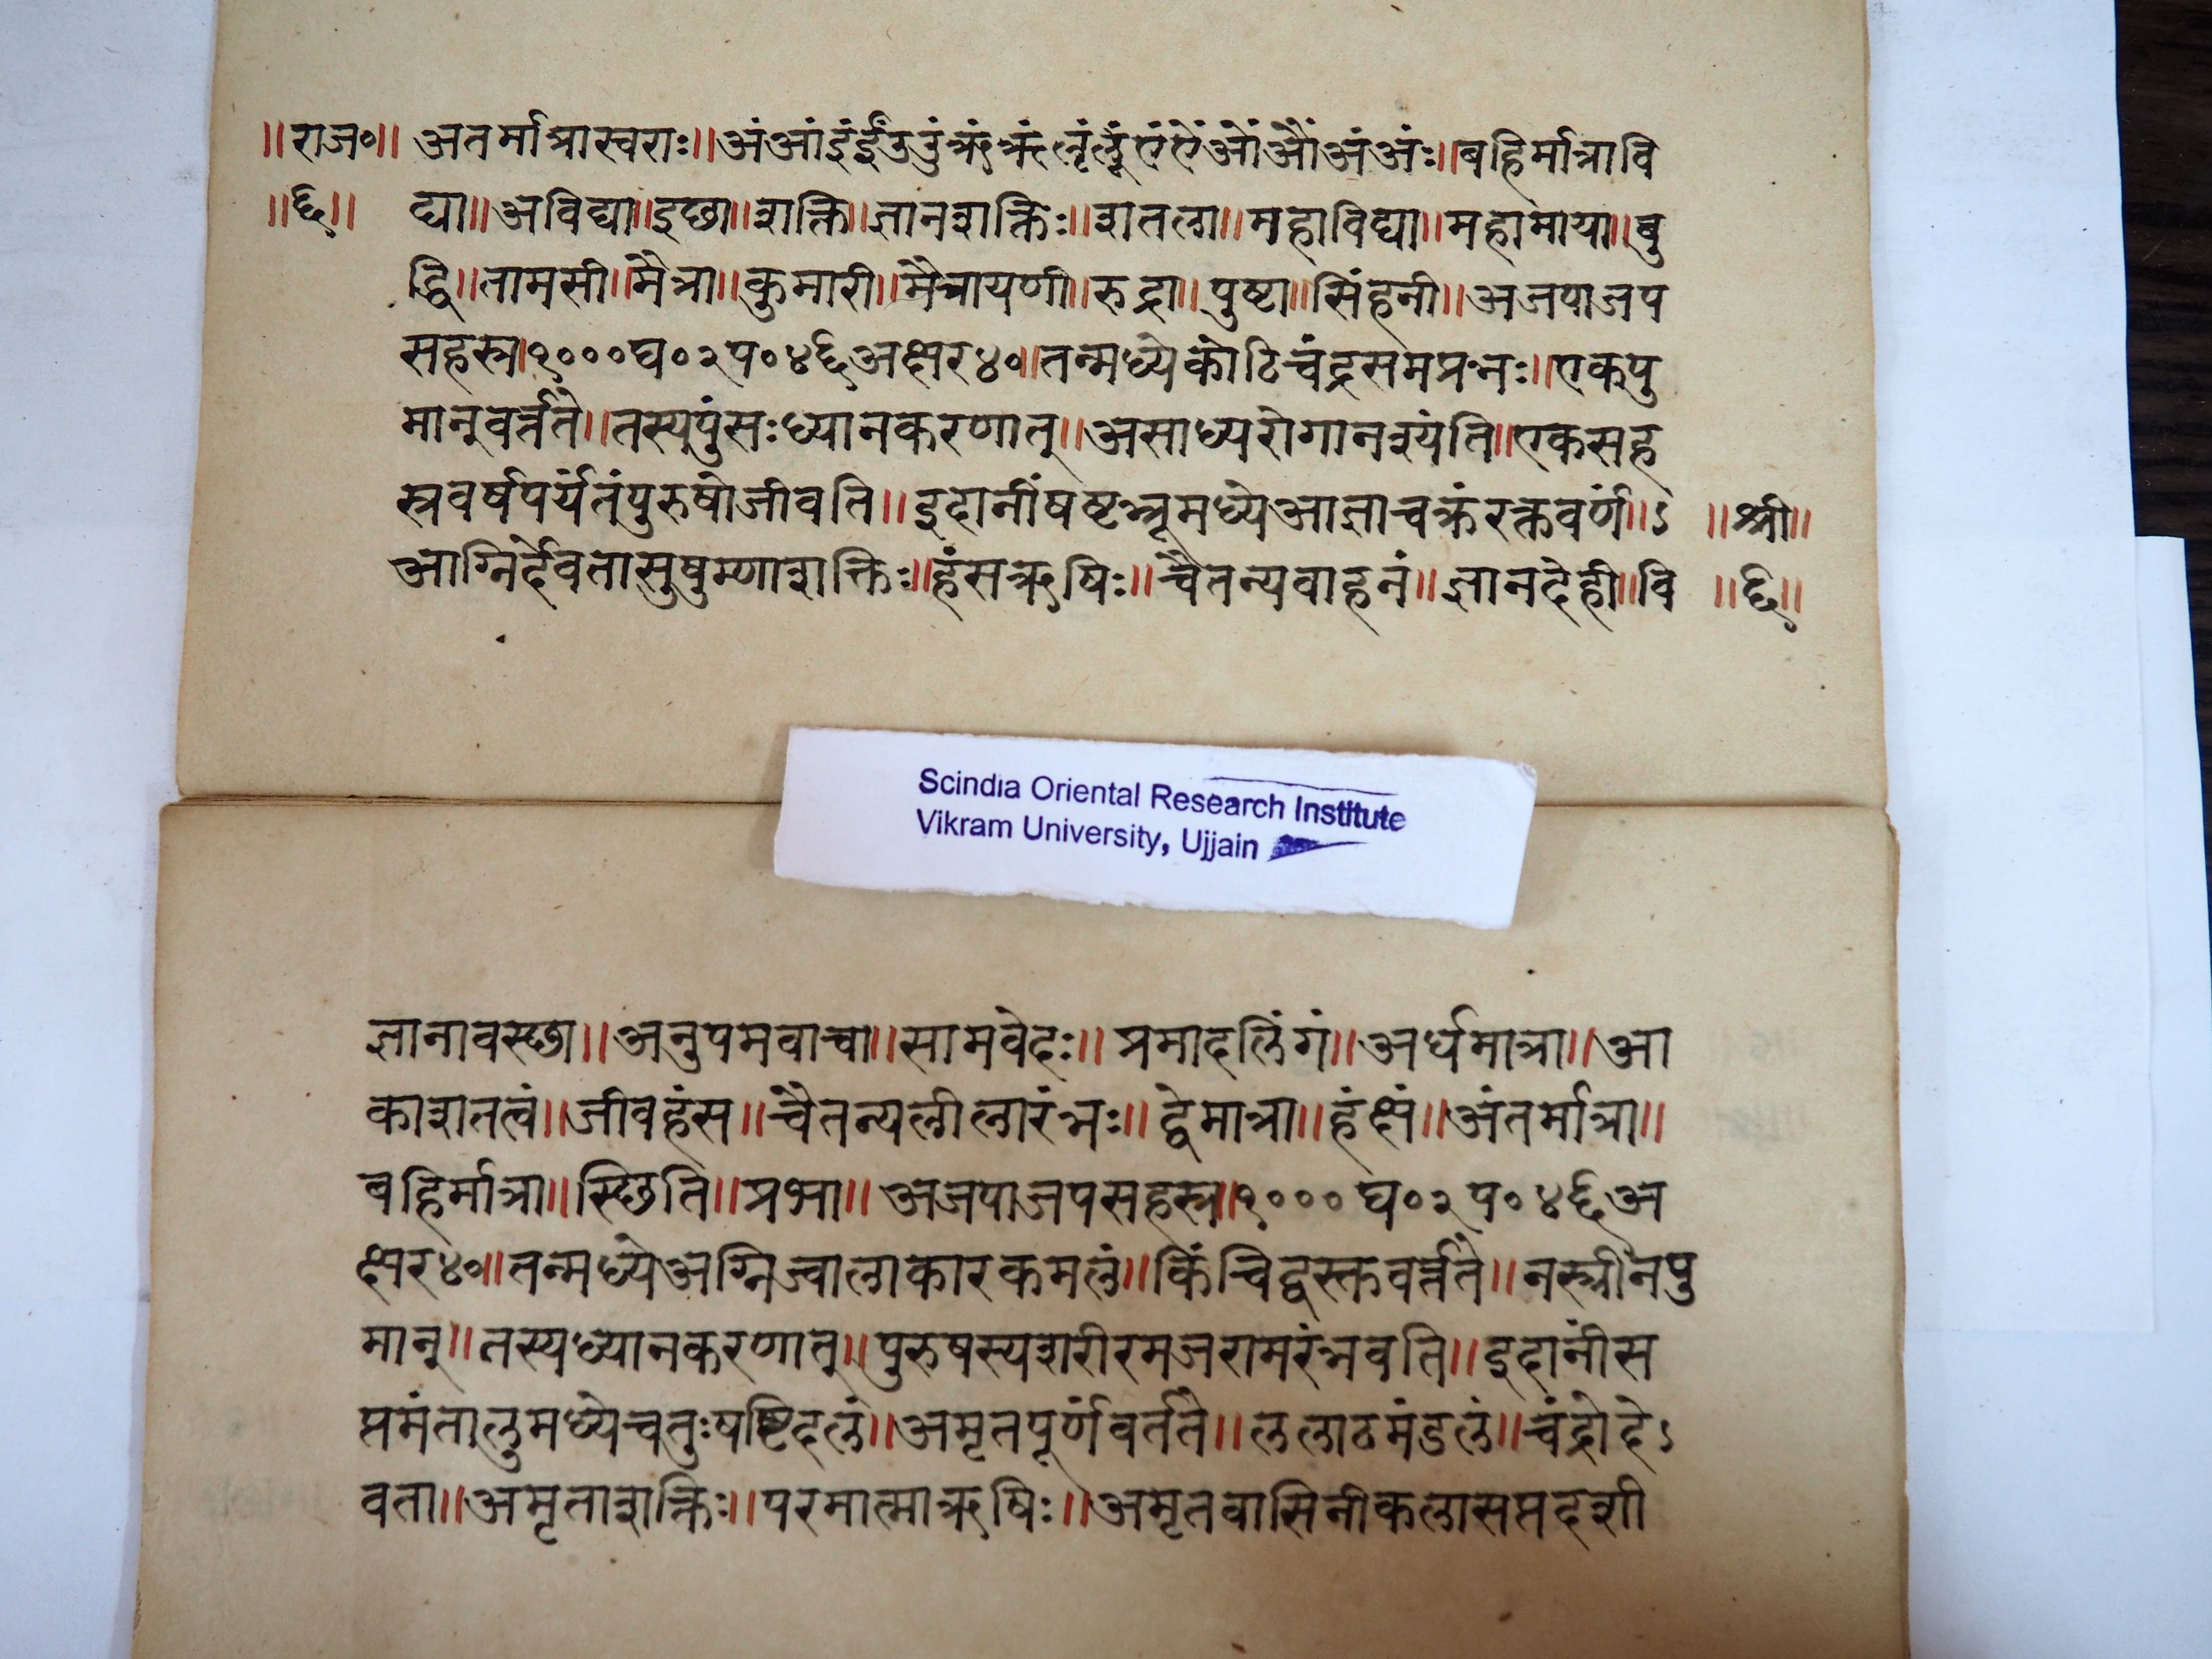 ॥राज०॥ अतर्मात्रास्वराः॥अंआंइंईंउंउुंऋंॠंलृंलॄंएंऐंओंऔंअंअंः॥बहिर्मात्रावि
॥६॥ द्या॥अविद्या॥इछा॥शक्ति॥ज्ञानशक्तिः॥शतला॥महाविद्या॥महामाया॥बु
द्धि॥तामसी॥मैत्रा॥कुमारी॥मैत्रायणी॥रुद्रा॥पुष्टा॥सिंहनी॥अजपाजप
सहस्र॥१०००घ०२प०४६अक्षर४०॥तन्मध्येकोटिचंद्रसमप्रभः॥एकपु
मान्वर्त्तते॥तस्यपुंसःध्यानकरणात्॥असाध्यरोगानश्यंति॥एकसह
स्रवर्षपर्यंतंपुरुषोजीवति॥इदानींषष्टभ्रूमध्येआज्ञाचक्रंरक्तवर्णं॥ऽ ॥श्री॥
आग्निर्देवतासुषुम्णाशक्तिः॥हंसऋषिः॥चैतन्यवाहनं॥ज्ञानदेही॥वि ॥६॥
Scindia Oriental Research Institute
Vikram University, Ujjain
ज्ञानावस्छा॥अनुपमवाचा॥सामवेदः॥प्रमादलिंगं॥अर्धमात्रा॥आ
काशतत्वं॥जीवहंस॥चैतन्यलीलारंभः॥द्वेमात्रा॥हंक्षं॥अंतर्मात्रा॥
बहिर्मात्रा॥स्छिति॥प्रभा॥अजपाजपसहस्र॥१०००घ०२प०४६अ
क्षर४०॥तन्मध्येअग्निज्वालाकारकमलं॥किंचिद्वस्क्तवर्त्तते॥नस्त्रीनपु
मान्॥तस्यध्यानकरणात्॥पुरुषस्यशरीरमजरामरंभवति॥इदानींस
प्तमंतालुमध्येचतुःषष्टिदलं॥अमृतपूर्णवर्तते॥ललाठमंडलं॥चंद्रोदेऽ
वता॥अमृताशक्तिः॥परमात्माऋषिः॥अमृतवासिनीकलासप्तदशी